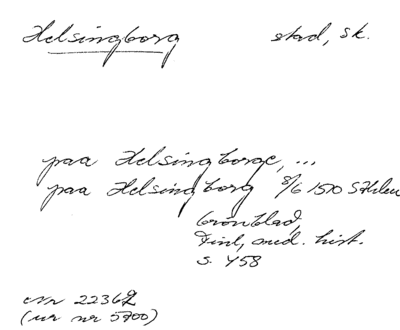 Helsingborg stad, Sk.
paa Helsingborge, ...
paa Helsingborg 8/6 1510 SHilu
Grönblad,
Finl, med. hist.
s. 458
nr 22362
(ur nr 5900)